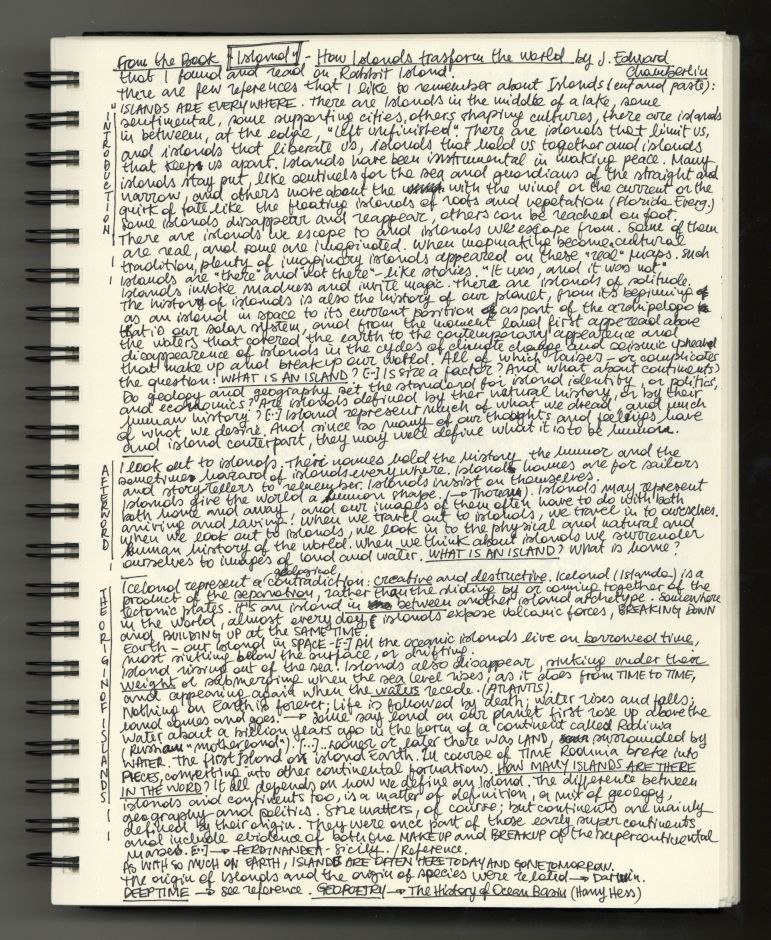 From the Book "Island" - How Islands trasform the world by J. Edward
Chamberlin
that I found and read on Rabbit Island.
there are few references that I like to remember about Islands (cut and paste):
INTRODUCTION
"ISLANDS ARE EVERYWHERE. There are Islands in the middle of a lake, some
sentimental, some supporting cities, others shaping cultures, there are islands
in between, at the edge, "left unfinished". There are islands that limit us,
and islands that liberate us, islands that hold us together and islands
that keep us apart. Islands have been instrumental in making peace. Many
islands stay put, like sentinels for the sea and guardians of the straight and
narrow, and others move about the with the wind or the current or the
quirk of fate like the floating islands of roots and vegetation (Florida Everg.)
some islands disappear and reappear, others can be reached on foot.
There are islands we escape to and islands we escape from. Some of them
are real, and some are imaginated. When mapmating become cultural
tradition, plenty of imaginary islands appeared on these "real" maps. Such
islands are "there" and "not there" - like stories. "It was, and it was not"
Islands invoke madness and invite magic. There are islands of solitude.
The history of islands is also the history of our planet, from its beginning
as an island in space to its current position as part of the archipelago
that is our solar system, and from the moment land first apperead above
the waters that covered the earth to the contemporary appearence and
disappearence of islands in the cycles of climate change and seismic upheaval
that make up and breakup our world. All of which raises - or complicates
the question: WHAT IS AN ISLAND? [-] Is size a factor? And what about continents?
Do geology and geography set the standard for island identity, or politics,
and economics? Are islands defined by their natural history, or by their
human history? [-] Island represent much of what we dread, and much
of what we desire. And since so many of our thoughts and feelings have
and island conterpart, they may well define what it is to be human.
AFTERWORD
I look out to islands. Their names hold the history, the humor and the
sometimes hazard of islands everywhere. Islands names are for sailors
and storytellers to remember. Islands insist on themselves.
Islands give the world a human shape. (→ Thoreau). Islands may represent
both home and away, and our images of them often have to do with both
arriving and leaving. When we travel out to islands, we travel in to ourselves.
when we look out to islands, we look in to the physical and natural and
human history of the world. When we think about islands we surrender
ourselves to images of land and water. WHAT IS AN ISLAND? What is home?
THE ORIGIN OF ISLANDS
geological
Iceland represent a contradiction: creative and destructive. Iceland (Islanda) is a
product of the separation, rather than the sliding by or coming together of the
tectonic plates. It's an island in between another island archetype. Somewhere
in the world, almost every day islands expose volcanic forces, BREAKING DOWN
and BUILDING UP at the SAME TIME.
Earth - our island in SPACE - [-] All the oceanic islands live on borrowed time,
most sinking below the surface, or drifting.
Island rising out of the sea! Islands also disappear, sinking under their
weight or submerging when the sea level rises, as it does from TIME to TIME,
and appearing again when the waters recede. (ATLANTIS).
Nothing on Earth is forever; life is followed by death; water rises and falls;
land comes and goes. → Some say land on our planet first rose up above the
water about a billion years ago in the form of a continent called Rodinia
(Russian "motherland") [..]. sooner or later there was LAND, surrounded by
WATER. The first Island on island Earth. In course of TIME Rodinia broke into
PIECES, converting into other continental formations. HOW MANY ISLANDS ARE THERE
IN THE WORD? It all depends on how we define an Island. The difference between
islands and continents too, is a matter of definition, a mix of geology,
geography and politics. Size matters, of course; but continents are mainly
defined by their origin. They were once part of those early super continents
and include evidence of both one MAKEUP and BREAKUP of the supercontinental
masses. [-] → FERDINANDEA - Sicily. / Reference.
AS WITH SO MUCH ON EARTH, ISLANDS ARE OFTEN HERE TODAY AND GONE TOMORROW.
The origin of islands and the origin of species were related → Darwin.
DEEPTIME → see reference. GEOPOETRY → The History of Ocean Basin (Harry Hess)